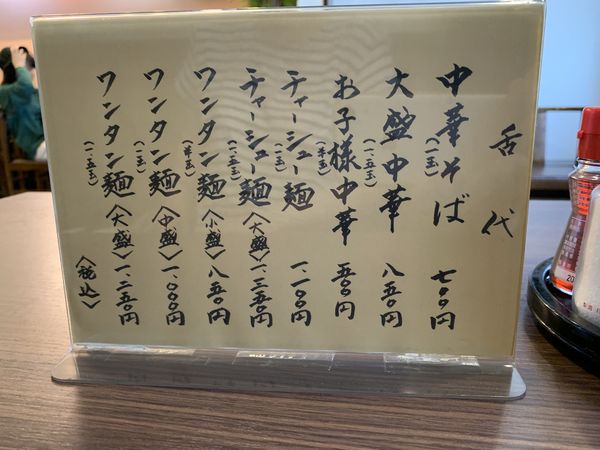 舌代
中華そば(一玉) 七〇〇円
大盛中華(一.五玉) 八五〇円
お子様中華(半玉) 五〇〇円
チャーシュー麺(一玉) 一.一〇〇円
チャーシュー麺(一.五玉)〈大盛〉一.三五〇円
ワンタン麺(半玉)〈小盛〉八五〇円
ワンタン麺(一玉)〈中盛〉一.〇〇〇円
ワンタン麺(一.五玉)〈大盛〉一.二五〇円
〈税込〉